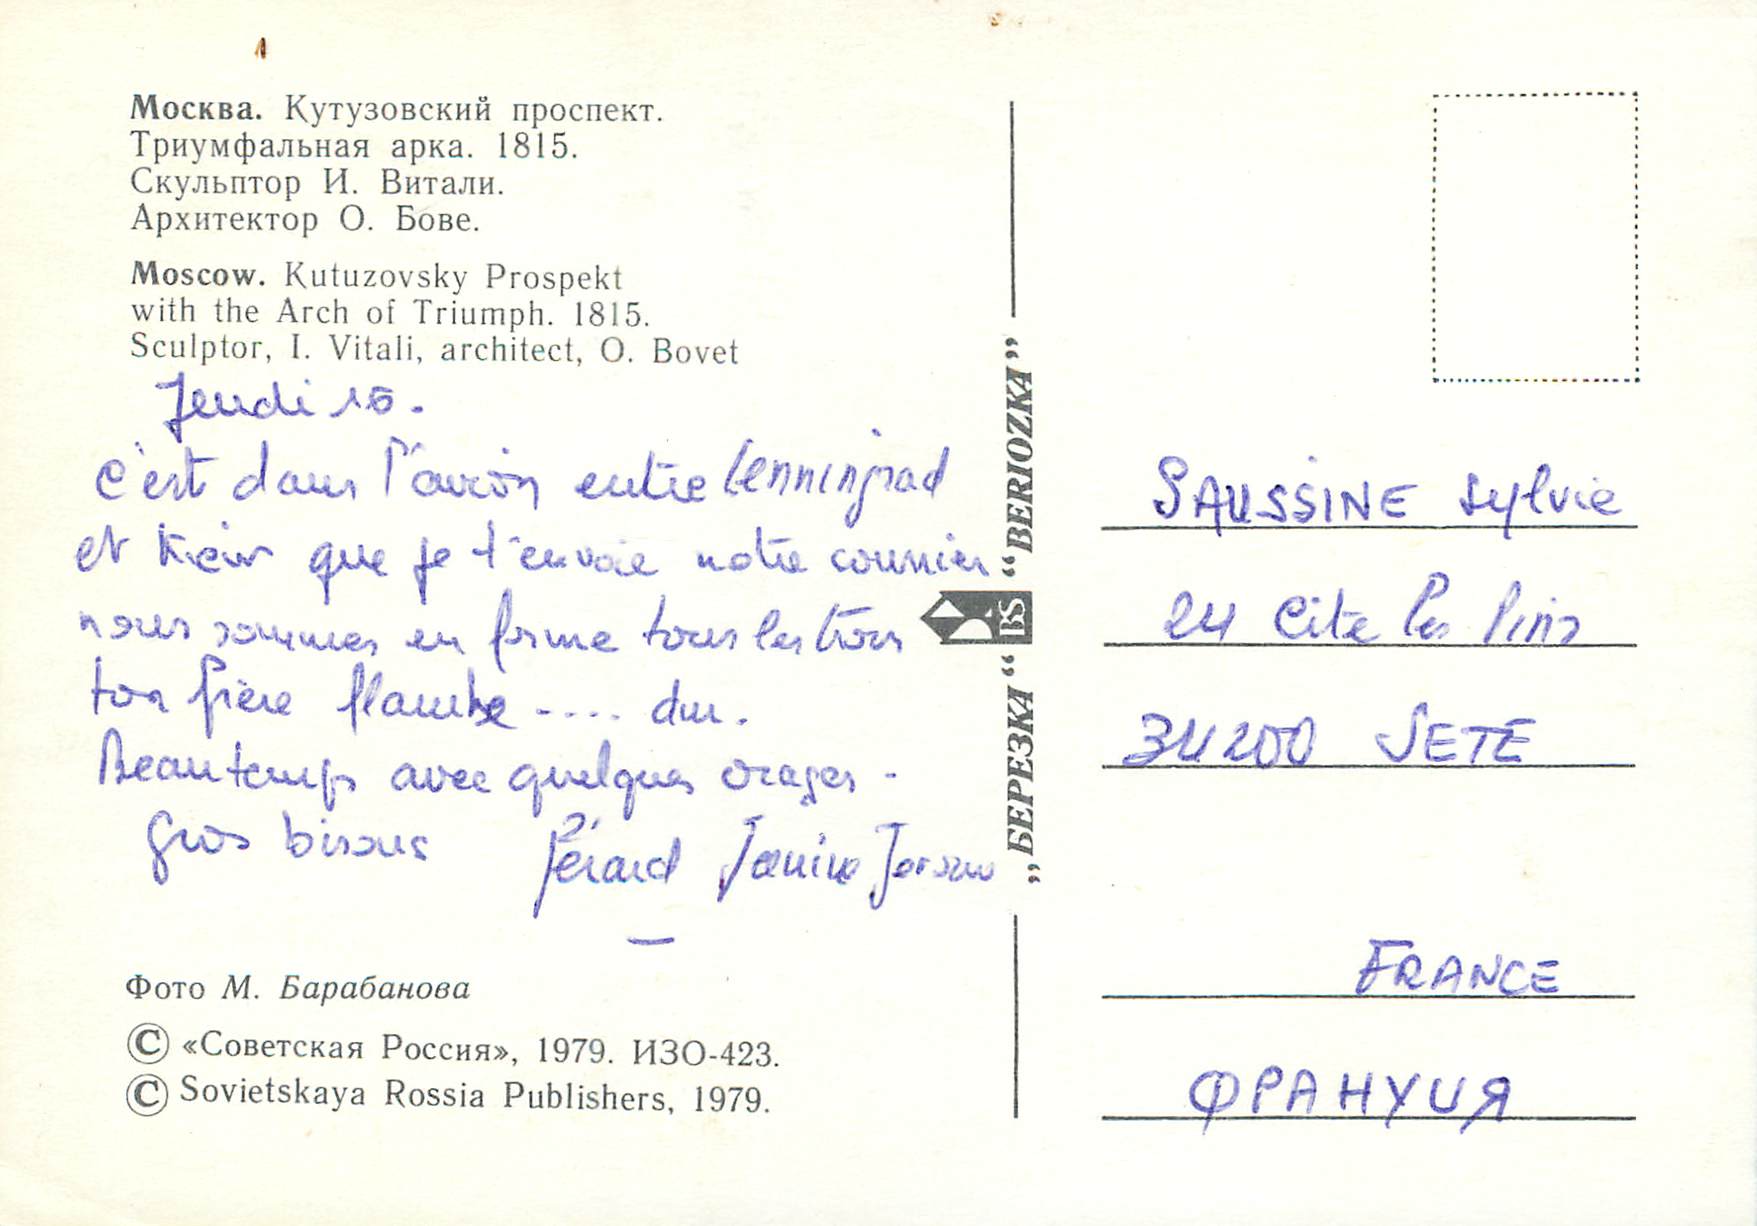 Москва. Кутузовский проспект.
Триумфальная арка. 1815.
Скульптор И. Витали.
Архитектор О. Бове.
Moscow. Kutuzovsky Prospekt
with the Arch of Triumph. 1815.
Sculptor, I. Vitali, architect, O. Bovet
Jeudi 16.
c'est dans l'avion entre Lenningrad
et Kiev que je t'envoie notre courrier
nous sommes en forme tous les trois
ton frère flambe .... dur.
Beau temps avec quelques orages.
Gros bisous Gérard Janine
Фото М. Барабанова
© «Советская Россия», 1979. ИЗО-423.
© Sovietskaya Rossia Publishers, 1979.
„БЕРЕЗКА“ “BERIOZKA”
BS
SAUSSINE Sylvie
24 Cite les Pins
34200 SETE
FRANCE
ФРАНУИЯ